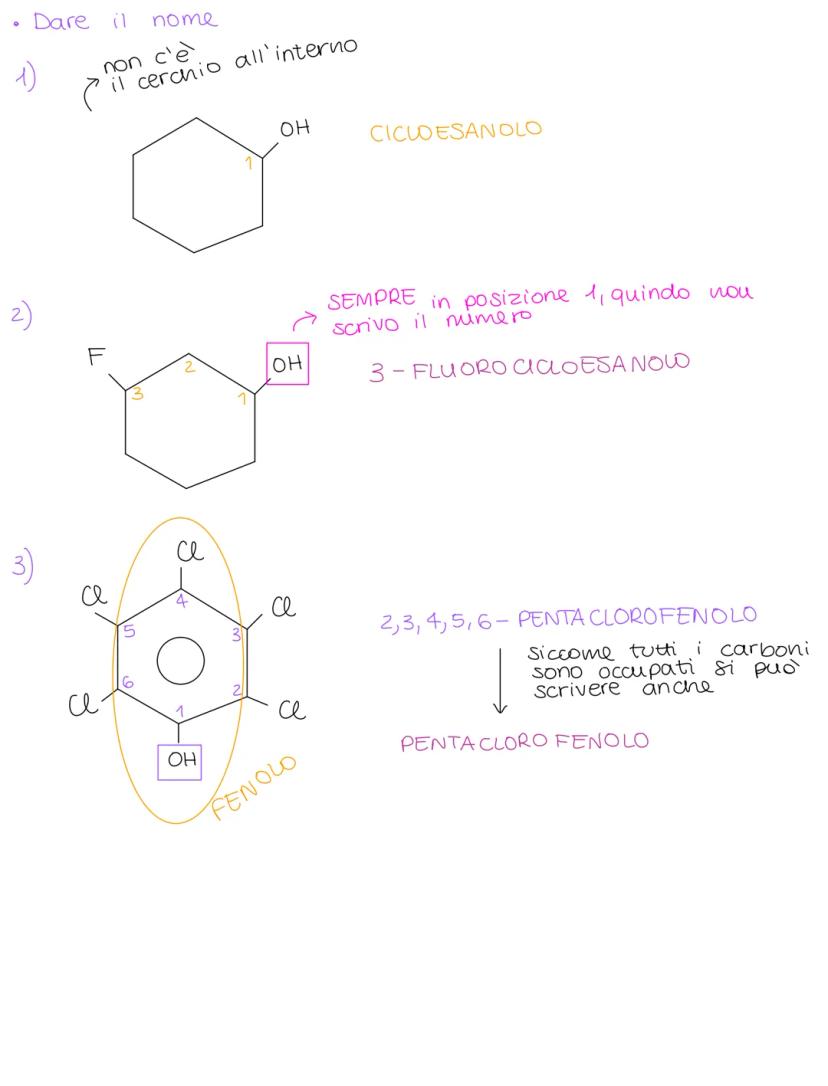 • Dare il nome
1)
non c'è
il cerchio all'interno
OH
1
CICLOESANOLO
2)
SEMPRE in posizione 1, quindo non
scrivo il numero
F
OH
2
3
1
3 - FLUORO CICLOESANOLO
3)
Cl
Cl
4
Cl
5
3
2,3,4,5,6 - PENTACLOROFENOLO
siccome tutti i carboni
sono occupati si può
scrivere anche
6
2
Cl
1
Cl
PENTACLORO FENOLO
OH
FENOLO